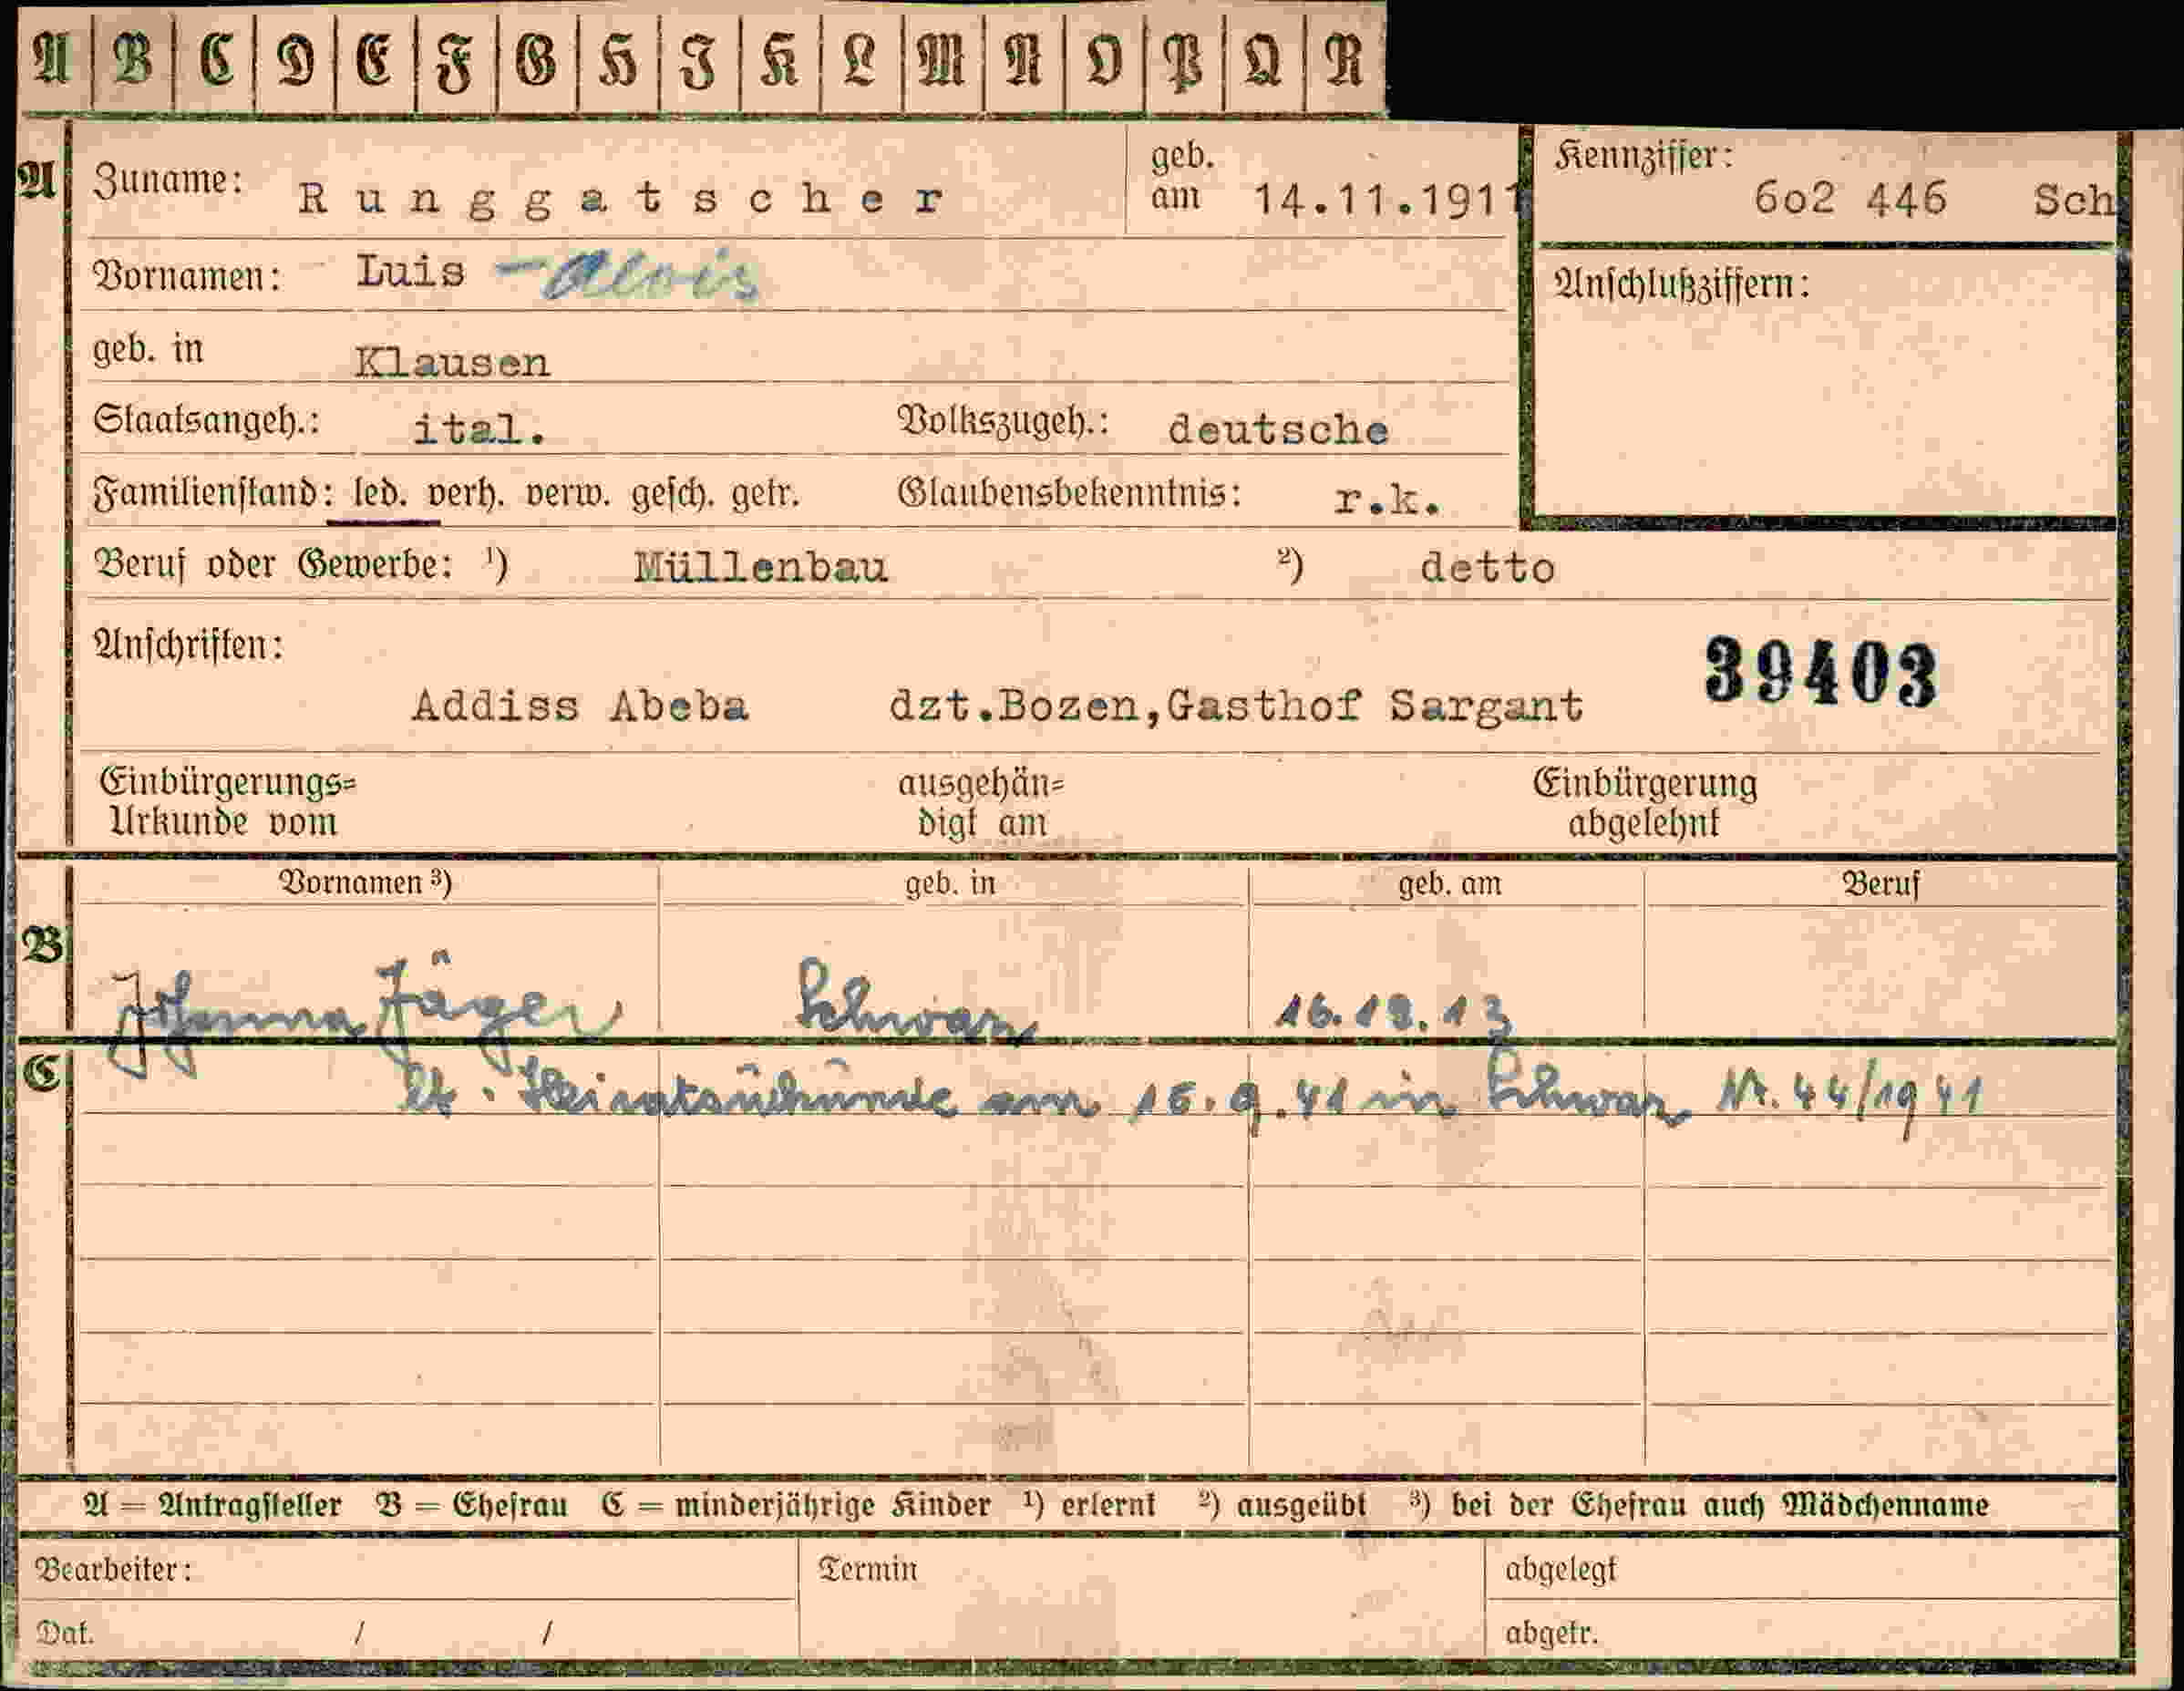 A B C D E F G H I K L M N O P Q R
A Zuname: Runggatscher geb. am 14.11.1911 Kennziffer: 6o2 446 Sch
Vornamen: Luis - Alois Anschlußziffern:
geb. in Klausen
Staatsangeh.: ital. Volkszugeh.: deutsche
Familienstand: led. verh. verw. gesch. getr. Glaubensbekenntnis: r.k.
Beruf oder Gewerbe: ¹) Müllenbau ²) detto
Anschriften: 39403
Addiss Abeba dzt.Bozen,Gasthof Sargant
Einbürgerungs= ausgehän= Einbürgerung
Urkunde vom digt am abgelehnt
Vornamen ³) geb. in geb. am Beruf
B Johanna Jäger Schwaz 16.12.13
C lt. Heiratsurkunde am 15.9.41 in Schwaz Nr. 44/1941
A = Antragsteller B = Ehefrau C = minderjährige Kinder ¹) erlernt ²) ausgeübt ³) bei der Ehefrau auch Mädchenname
Bearbeiter: Termin abgelegt
Dat. / / abgetr.